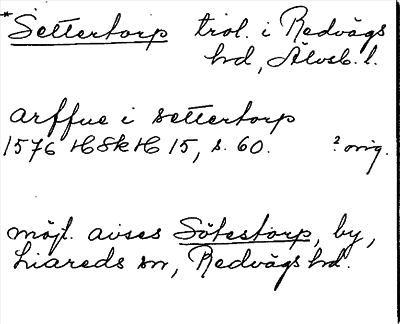 *Settertorp trol. i Redvägs
hd, Älvsb. l.
arffue i settertorp
1576 HSkH 15, s. 60. ? orig.
möjl. avses Sötestorp, by,
Liareds sn, Redvägs hd.